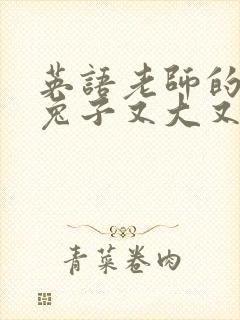 英語老師的
兔子又大又
青菜卷肉